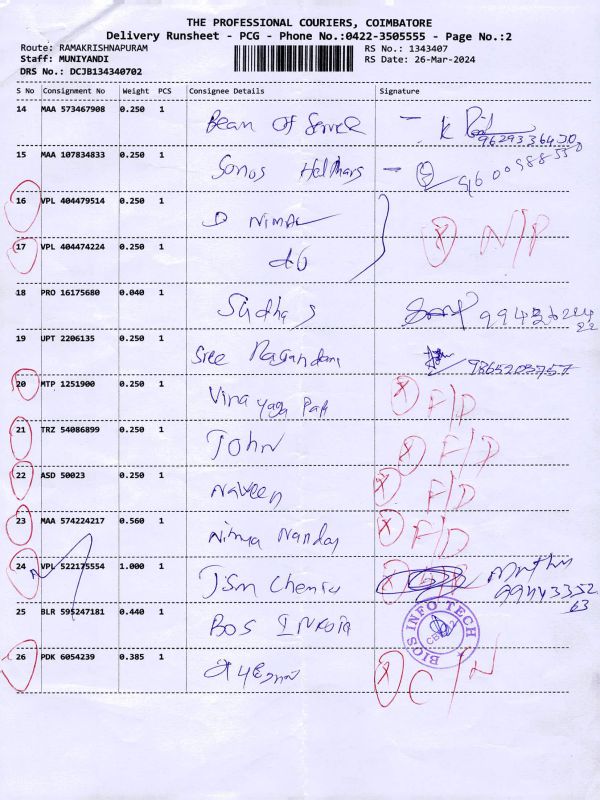 THE PROFESSIONAL COURIERS, COIMBATORE
Delivery Runsheet - PCG - Phone No.:0422-3505555 - Page No.:2
Route: RAMAKRISHNAPURAM RS No.: 1343407
Staff: MUNIYANDI RS Date: 26-Mar-2024
DRS No.: DCJB134340702
S No Consignment No Weight PCS Consignee Details Signature
14 MAA 573467908 0.250 1 Beam Of Service - K
9629336430
15 MAA 107834833 0.250 1 Sonos -
16 VPL 404479514 0.250 1 D Nimal N/P
17 VPL 404474224 0.250 1 do
18 PRO 16175680 0.040 1 Sudha S
19 UPT 2206135 0.250 1 Sree 9865203757
20 MTP 1251900 0.250 1 Vinayaga F/D
21 TRZ 54086899 0.250 1 John F/D
22 ASD 50023 0.250 1 Naveen F/D
23 MAA 574224217 0.560 1 Nithya F/D
24 VPL 522175554 1.000 1 JSM
99443352
63
25 BLR 595247181 0.440 1 BOS BIOS INFO TECH
26 PDK 6054239 0.385 1 C/N